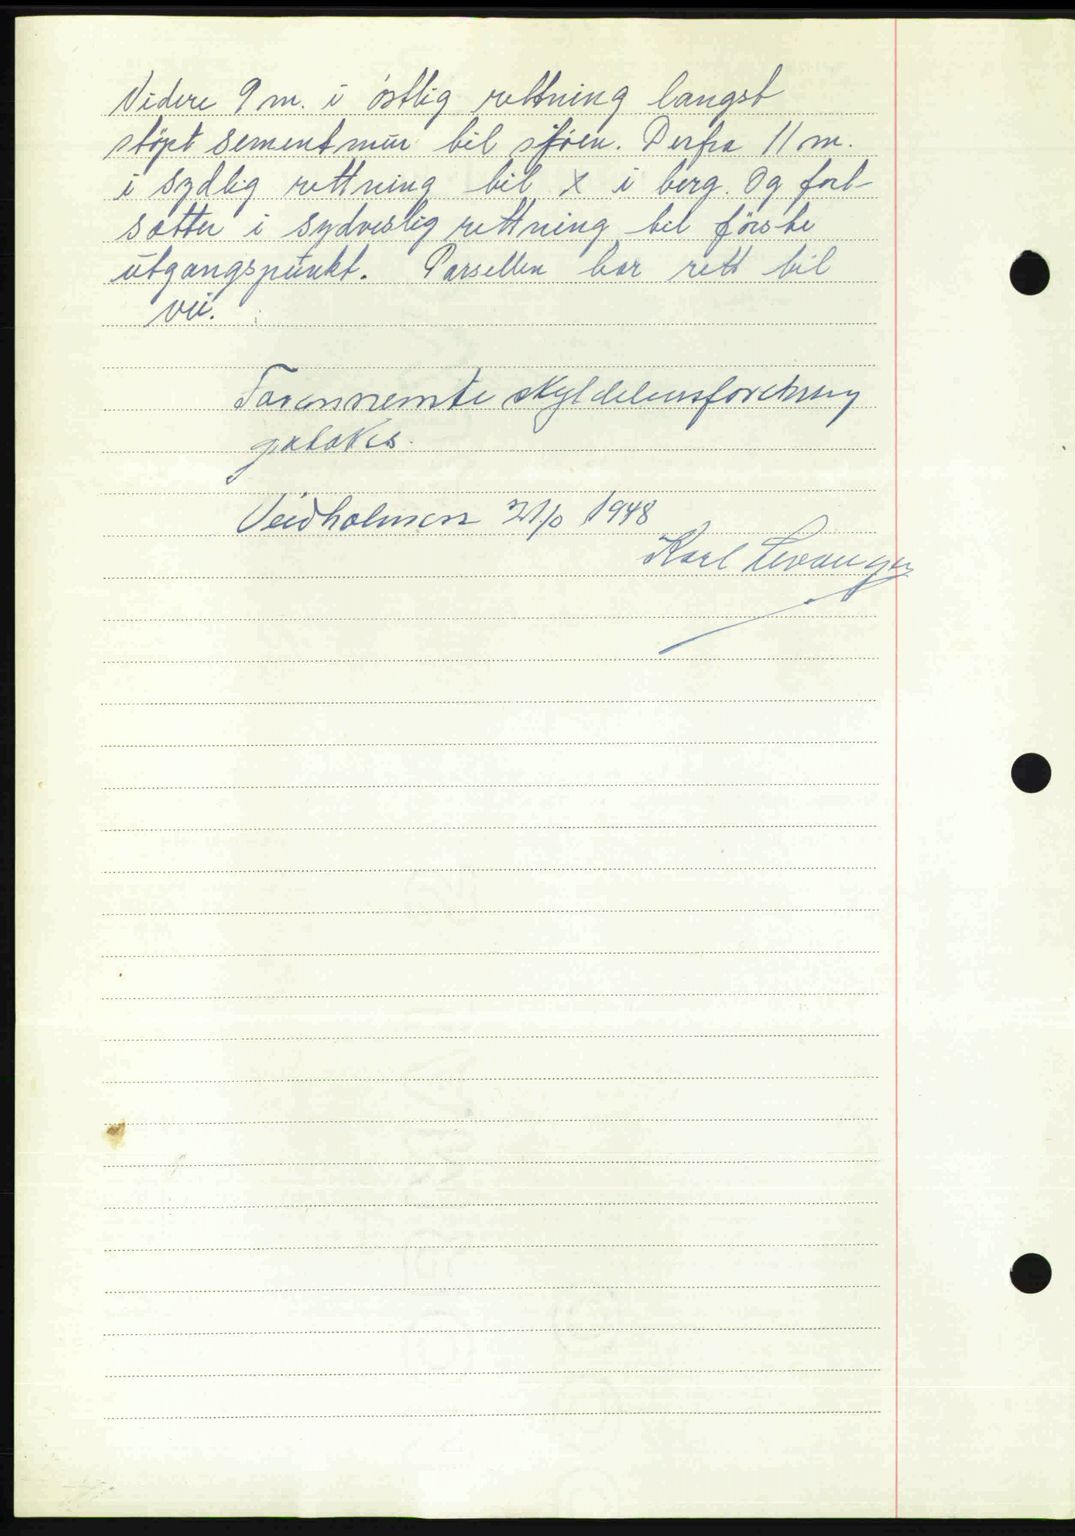 Videre 9 m. i östlig rettning langst
stöpt sementmur til sjöen. Derfra 11 m.
i sydlig rettning til X i berg. Og fort-
setter i sydvestlig rettning til förste
utgangspunkt. Parsellen har rett til
vei.
Forannemte skyldelensforetning
godtakes.
Veidholmen 21/ 1948
Karl Levanger